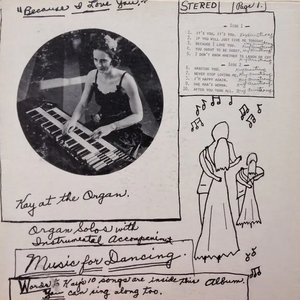 "Because I Love You,"
STEREO
Page 1.
SIDE 1
1. IT'S YOU, IT'S YOU.
2. IF YOU WILL JUST GIVE ME TONIGHT.
3. BECAUSE I LOVE YOU.
4. YOU OUGHT TO BE SWEET,
5. I DON'T KNOW WHETHER TO LAUGH OR CRY
SIDE 2
6. WANTING YOU.
7. NEVER STOP LOVING ME.
8. I'M HAPPY AGAIN.
9. ONE MAN'S WOMAN.
10. AFTER YOU TOOK ALL.
Kay at the Organ.
Organ Solos with
Instrumental Accompaning
Music for Dancing.
Words to Kay's 10 songs are inside this Album.
You can sing along too.